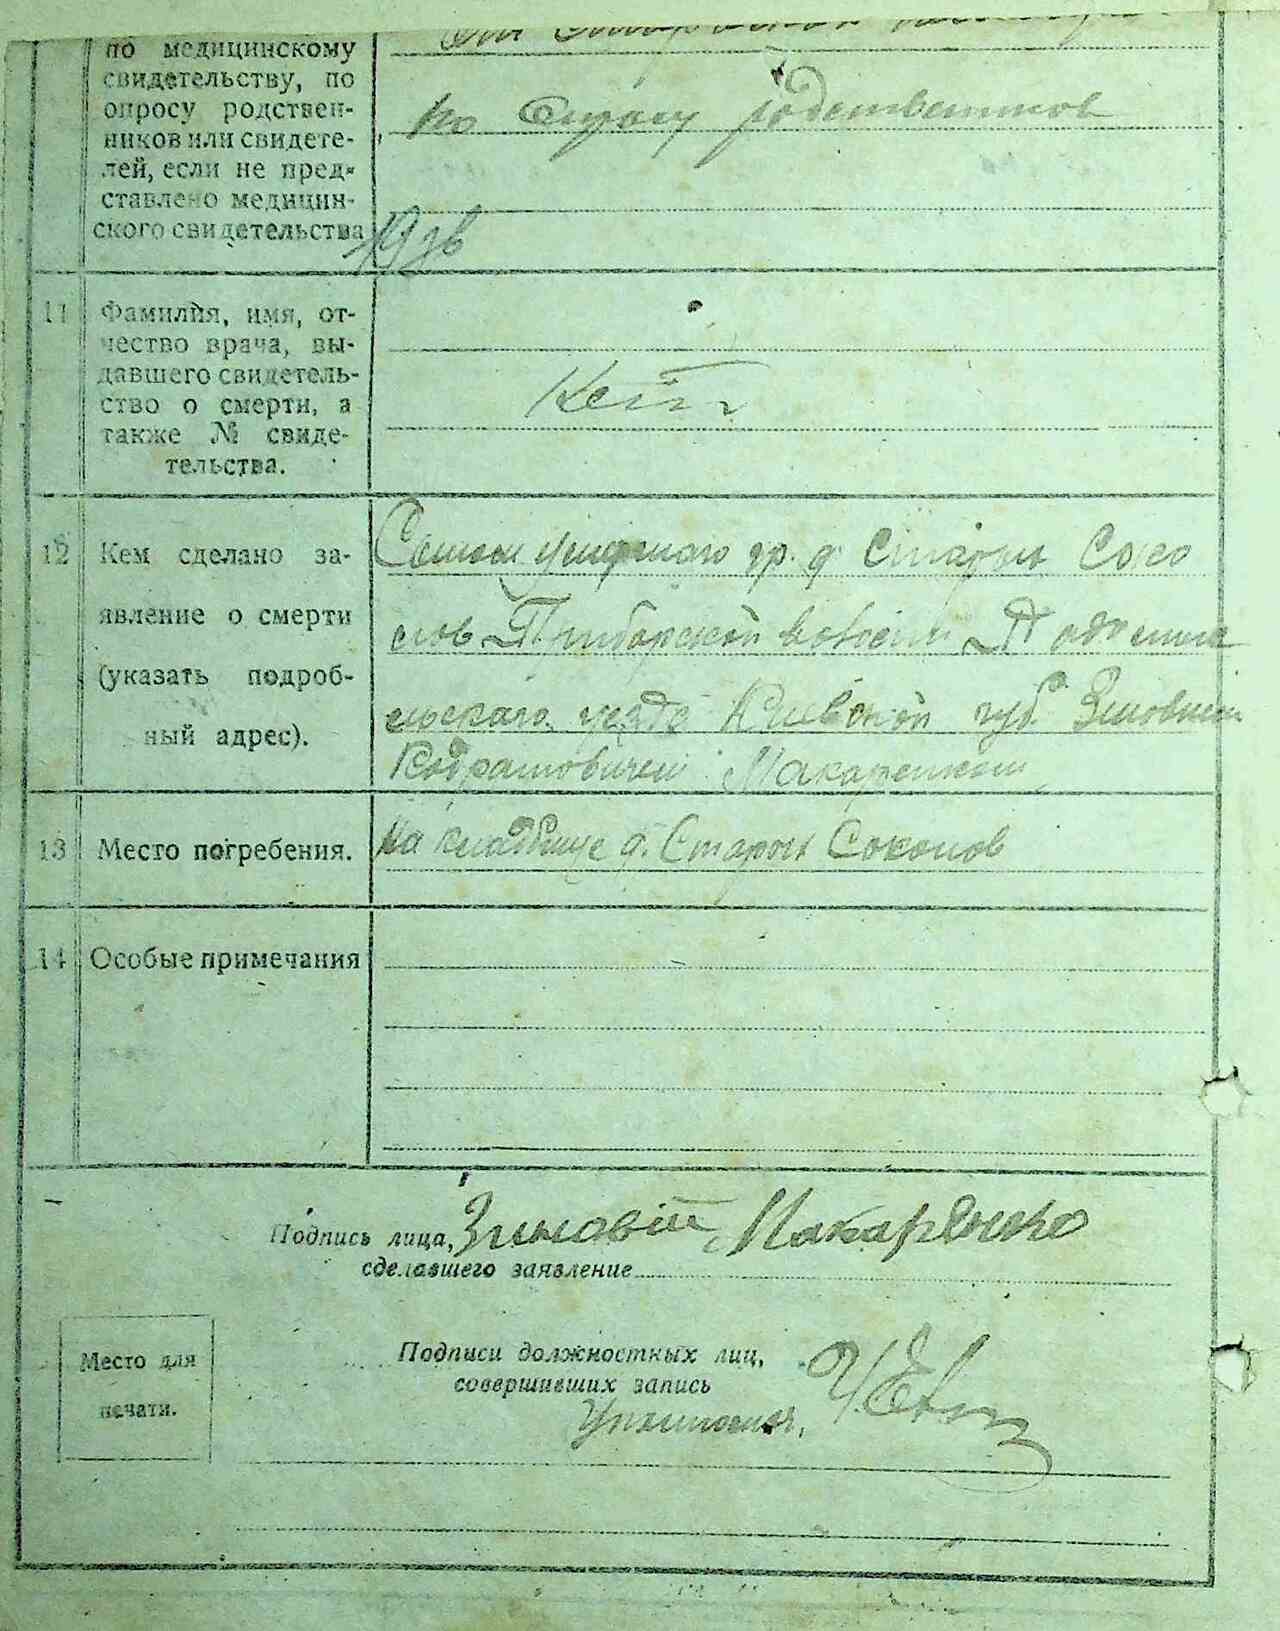 по медицинскому
свидетельству, по
опросу родствен-
ников или свидете-
лей, если не пред-
ставлено медицин-
ского свидетельства
по опросу родственников
11 Фамилия, имя, от-
чество врача, вы-
давшего свидетель-
ство о смерти, а
также № свиде-
тельства.
12 Кем сделано за-
явление о смерти
(указать подроб-
ный адрес).
Сыном умершаго гр. д. Старых Соко
лов Приборской волости
уезда Киевской губ. Зиновием
Кодратовичем Макаренком
13 Место погребения.
На кладбище д. Старых Соколов
14 Особые примечания
Подпись лица, Зиновій Макаренко
сделавшего заявление
Место для
печати.
Подписи должностных лиц,
совершивших запись